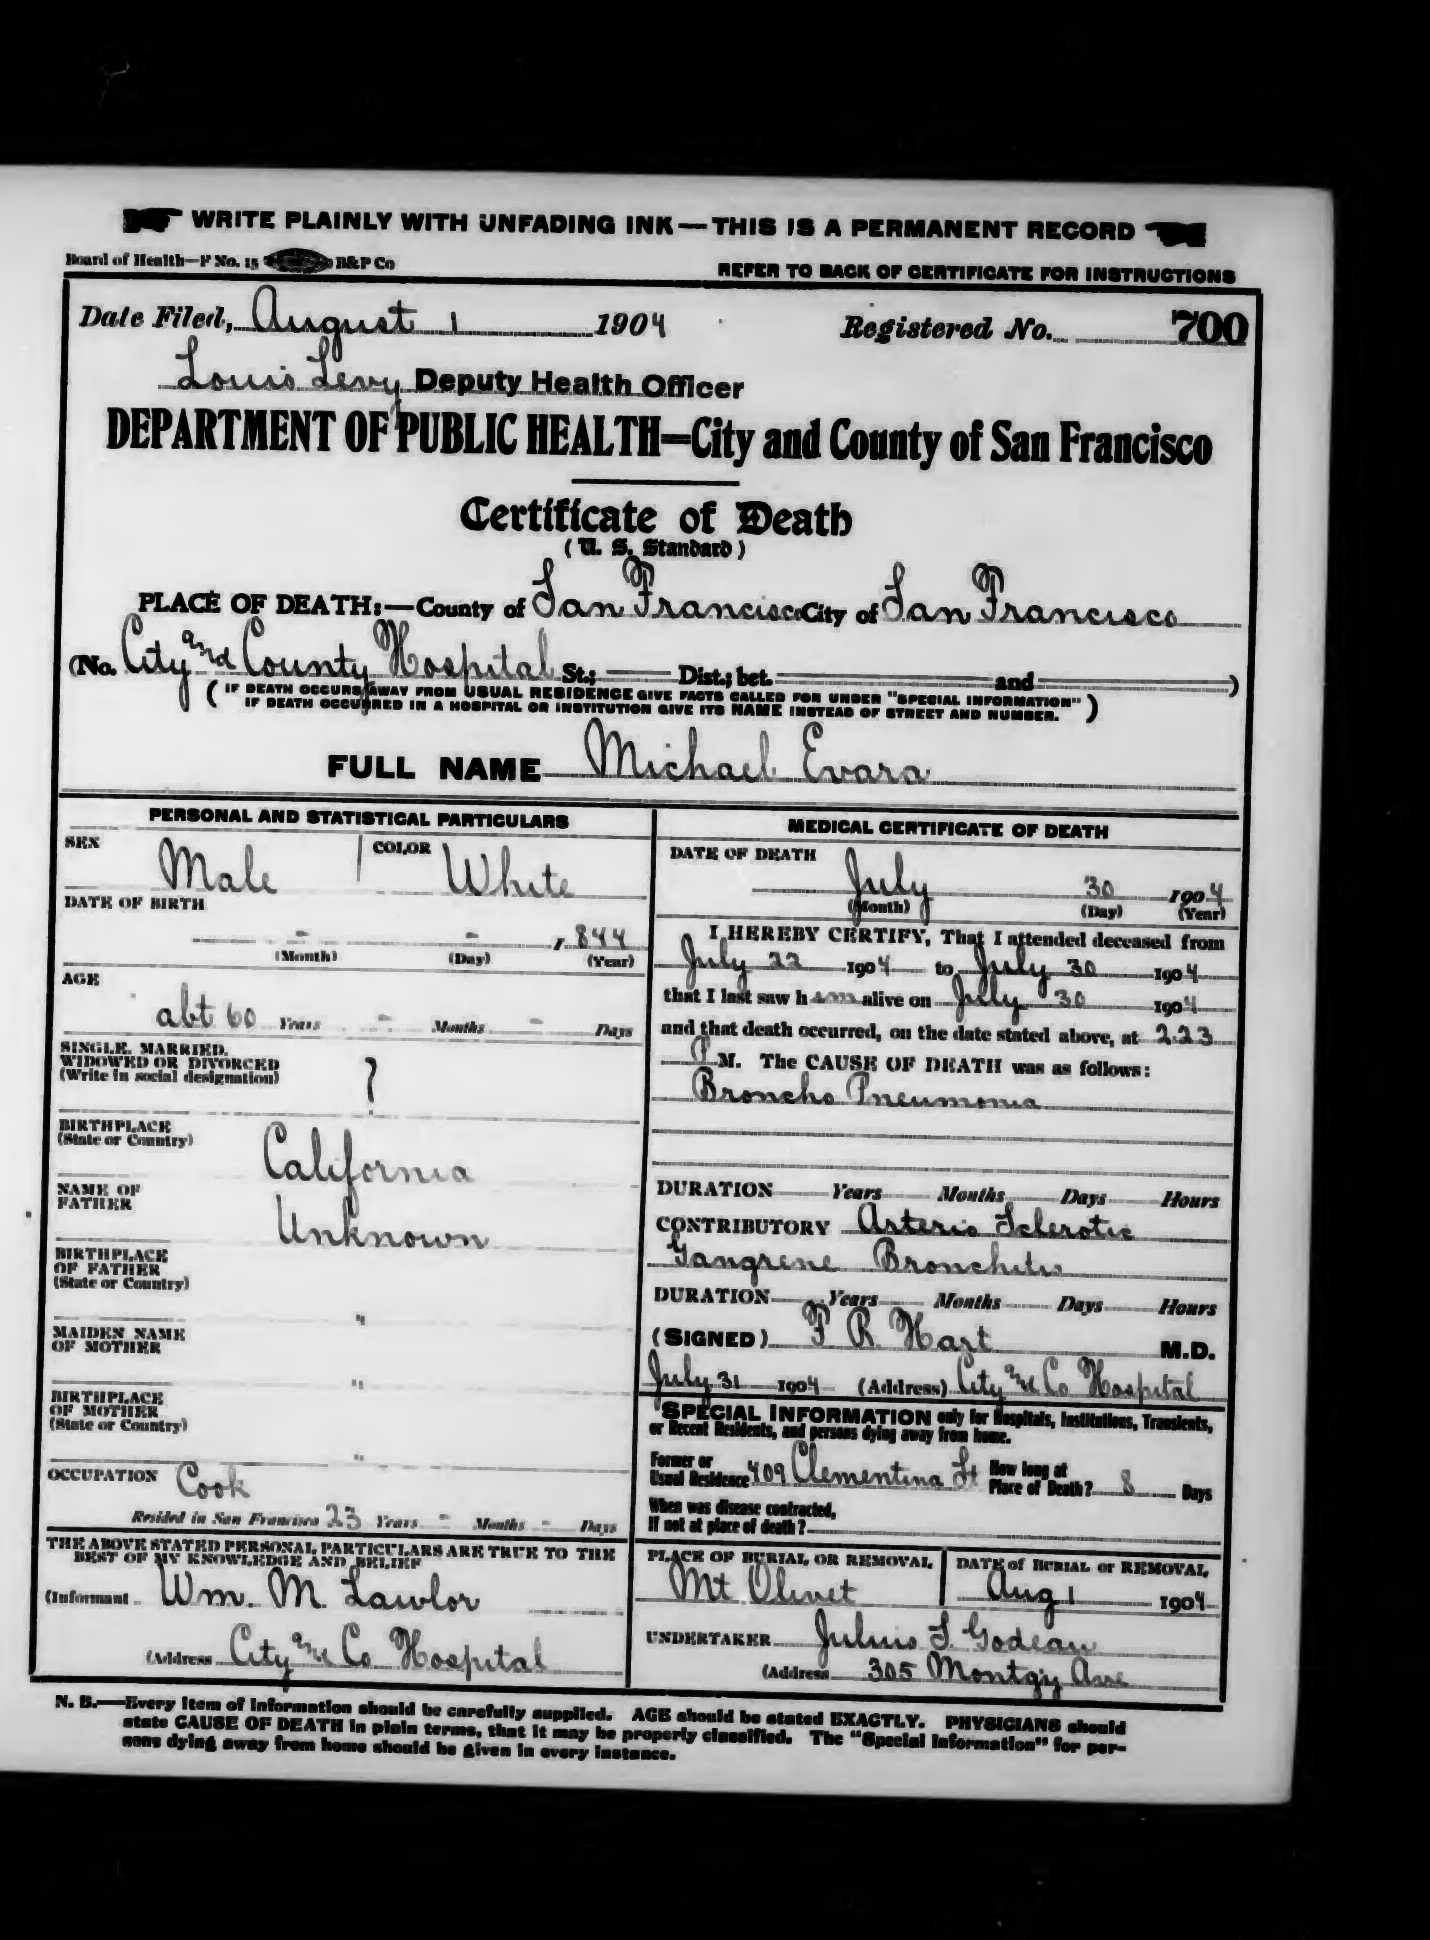 WRITE PLAINLY WITH UNFADING INK—THIS IS A PERMANENT RECORD
Board of Health—F No. 15 B&P Co
REFER TO BACK OF CERTIFICATE FOR INSTRUCTIONS
Date Filed, August 1 1904 Registered No. 700
Louis Levy Deputy Health Officer
DEPARTMENT OF PUBLIC HEALTH—City and County of San Francisco
Certificate of Death
(U. S. Standard)
PLACE OF DEATH:—County of San Francisco City of San Francisco
(No. City and County Hospital St.; Dist.; bet. and )
(IF DEATH OCCURS AWAY FROM USUAL RESIDENCE GIVE FACTS CALLED FOR UNDER "SPECIAL INFORMATION"
IF DEATH OCCURRED IN A HOSPITAL OR INSTITUTION GIVE ITS NAME INSTEAD OF STREET AND NUMBER.)
FULL NAME Michael Evara
PERSONAL AND STATISTICAL PARTICULARS
SEX Male COLOR White
DATE OF BIRTH
- - 1844
(Month) (Day) (Year)
AGE
abt 60 Years - Months - Days
SINGLE, MARRIED,
WIDOWED OR DIVORCED
(Write in social designation) ?
BIRTHPLACE
(State or Country)
California
NAME OF
FATHER
Unknown
BIRTHPLACE
OF FATHER
(State or Country)
"
MAIDEN NAME
OF MOTHER
"
BIRTHPLACE
OF MOTHER
(State or Country)
"
OCCUPATION Cook
Resided in San Francisco 23 Years - Months - Days
THE ABOVE STATED PERSONAL PARTICULARS ARE TRUE TO THE
BEST OF MY KNOWLEDGE AND BELIEF
(Informant Wm. M. Lawlor
(Address City and Co Hospital
MEDICAL CERTIFICATE OF DEATH
DATE OF DEATH
July 30 1904
(Month) (Day) (Year)
I HEREBY CERTIFY, That I attended deceased from
July 22 1904 to July 30 1904
that I last saw him alive on July 30 1904
and that death occurred, on the date stated above, at 2.23
P M. The CAUSE OF DEATH was as follows:
Broncho Pneumonia
DURATION Years Months Days Hours
CONTRIBUTORY Arterio Sclerotic
Gangrene Bronchitis
DURATION Years Months Days Hours
(SIGNED) F R Hart M.D.
July 31 1904 (Address) City and Co Hospital
SPECIAL INFORMATION only for Hospitals, Institutions, Transients,
or Recent Residents, and persons dying away from home.
Former or
Usual Residence 409 Clementina St How long at
Place of Death? 8 Days
When was disease contracted,
If not at place of death?
PLACE OF BURIAL OR REMOVAL DATE of BURIAL or REMOVAL
Mt Olivet Aug 1 1904
UNDERTAKER Julius S. Godeau
(Address 305 Montgy Ave
N. B.—Every item of information should be carefully supplied. AGE should be stated EXACTLY. PHYSICIANS should
state CAUSE OF DEATH in plain terms, that it may be properly classified. The "Special Information" for per-
sons dying away from home should be given in every instance.